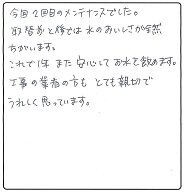 今回2回目のメンテナンスでした。
取替前と後では水のおいしさが全然
ちがいます。
これで1年また安心してお水を飲めます。
工事の業者の方もとても親切で
うれしく思っています。